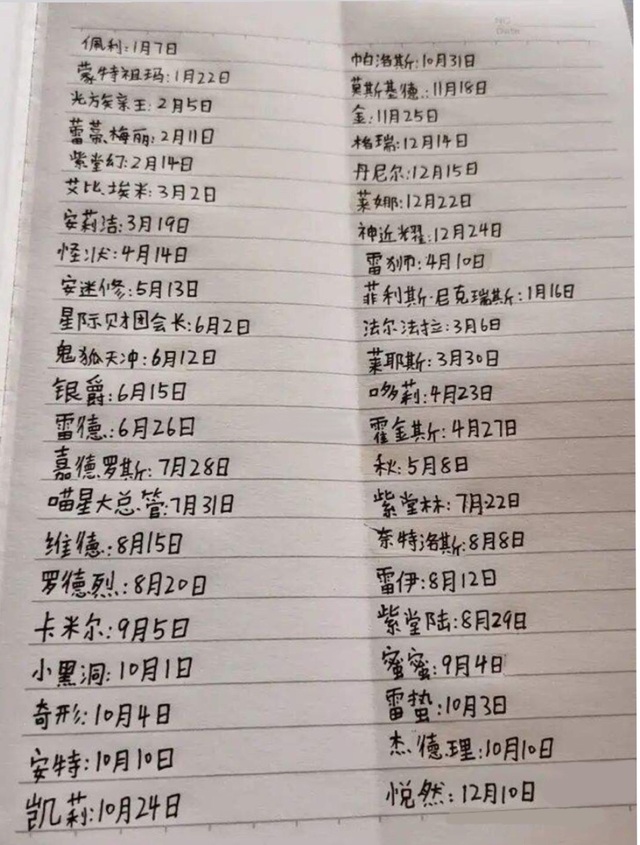 NO.
Date
佩利:1月7日
蒙特祖玛:1月22日
光族亲王:2月5日
蕾蒂、梅丽:2月11日
紫堂幻:2月14日
艾比、埃米:3月2日
安莉洁:3月19日
怪状:4月14日
安迷修:5月13日
星际财团会长:6月2日
鬼狐天冲:6月12日
银爵:6月15日
雷德:6月26日
嘉德罗斯:7月28日
喵星大总管:7月31日
维德:8月15日
罗德烈:8月20日
卡米尔:9月5日
小黑洞:10月1日
奇形:10月4日
安特:10月10日
凯莉:10月24日
帕洛斯:10月31日
莫斯基德:11月18日
金:11月25日
格瑞:12月14日
丹尼尔:12月15日
莱娜:12月22日
神近耀:12月24日
雷狮:4月10日
菲利斯·尼克瑞斯:1月16日
法尔法拉:3月6日
莱耶斯:3月30日
哆莉:4月23日
霍金斯:4月27日
秋:5月8日
紫堂林:7月22日
奈特洛斯:8月8日
雷伊:8月12日
紫堂陆:8月29日
蜜蜜:9月4日
雷蛰:10月3日
杰德理:10月10日
悦然:12月10日